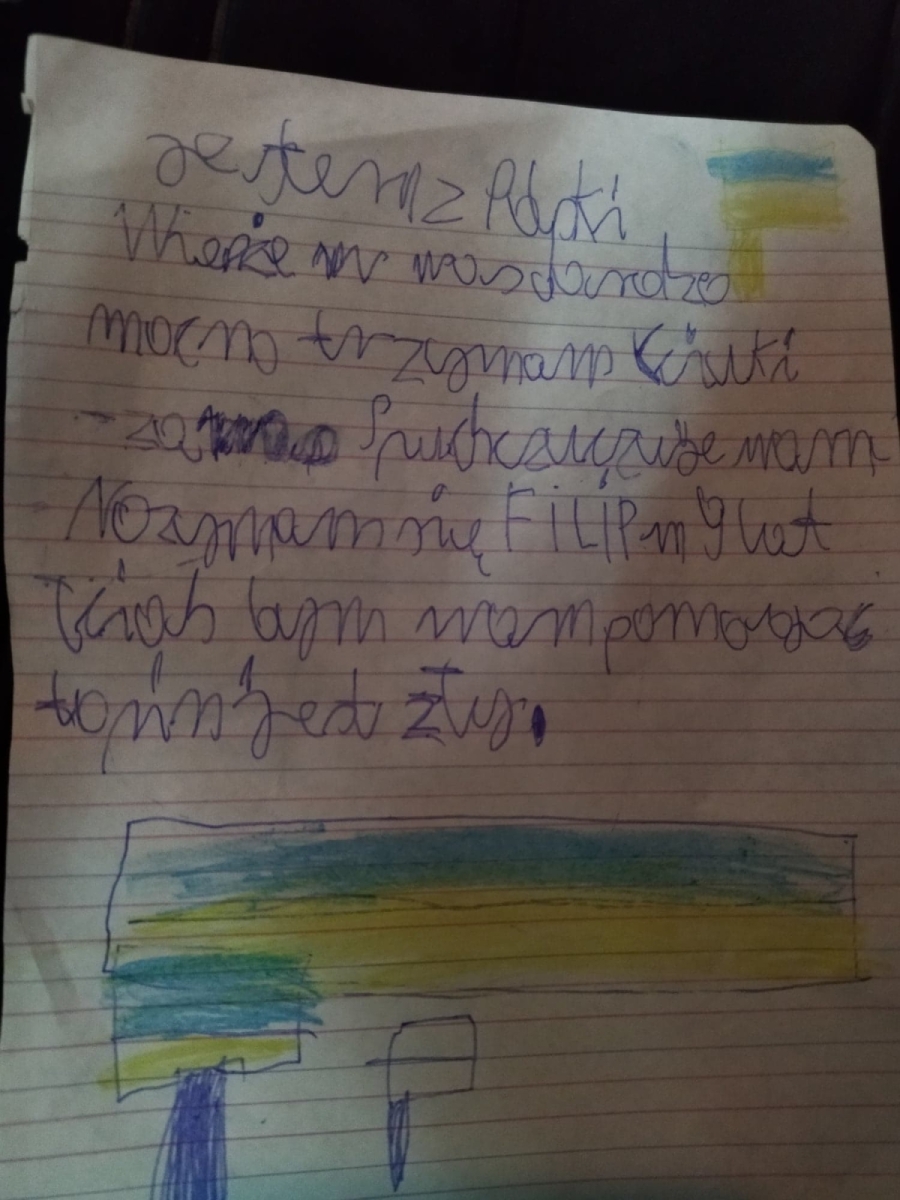 Jestem z Polski
Wierze w was bardzo
mocno trzymam kciuki
za was i wam
Nazywam się FILIP m 9 lat
Chciał bym wam pomagać
to putin jest zły.